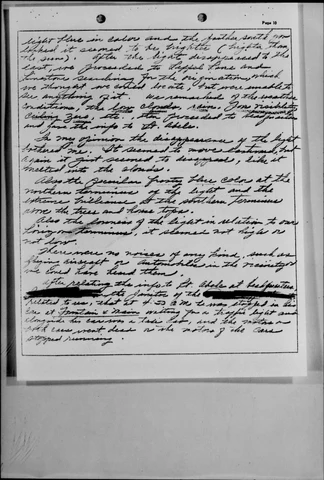 Page 10
light blue in color and the farther south now
it seemed to be brighter (brighter than
the sun). After the light disappeared to the
east, we proceeded to
searching for the origination, which
we thought we could locate, but were unable to
see anything yet. We remarked of the weather
conditions, the low clouds, rain, low visibility,
ceiling zero, etc. then proceeded to headquarters
and gave the info to Lt. Abele.
In my opinion the disappearance of the light
bothered me. It seemed to move eastward, but
again it just seemed to disappear, like it
melted into the clouds.
Also the peculiar frosty blue color at the
northern terminus of the light and the
extreme brilliance at the southern terminus
over the trees and house tops.
Also the source of the light in relation to our
terminus, it seemed not high or
not low.
There were no noises of any kind, such as
flying aircraft or automobiles in the vicinity or
we could have heard them.
After relating the info to Lt. Abele at headquarters,
the janitor of the
related to us, that at 4:53 A.M. he was stopped in his
car at Fountain & Main waiting for a traffic light and
alongside his car was a taxi cab, and the motors on
both cars went dead or the motors of the cars
stopped running.